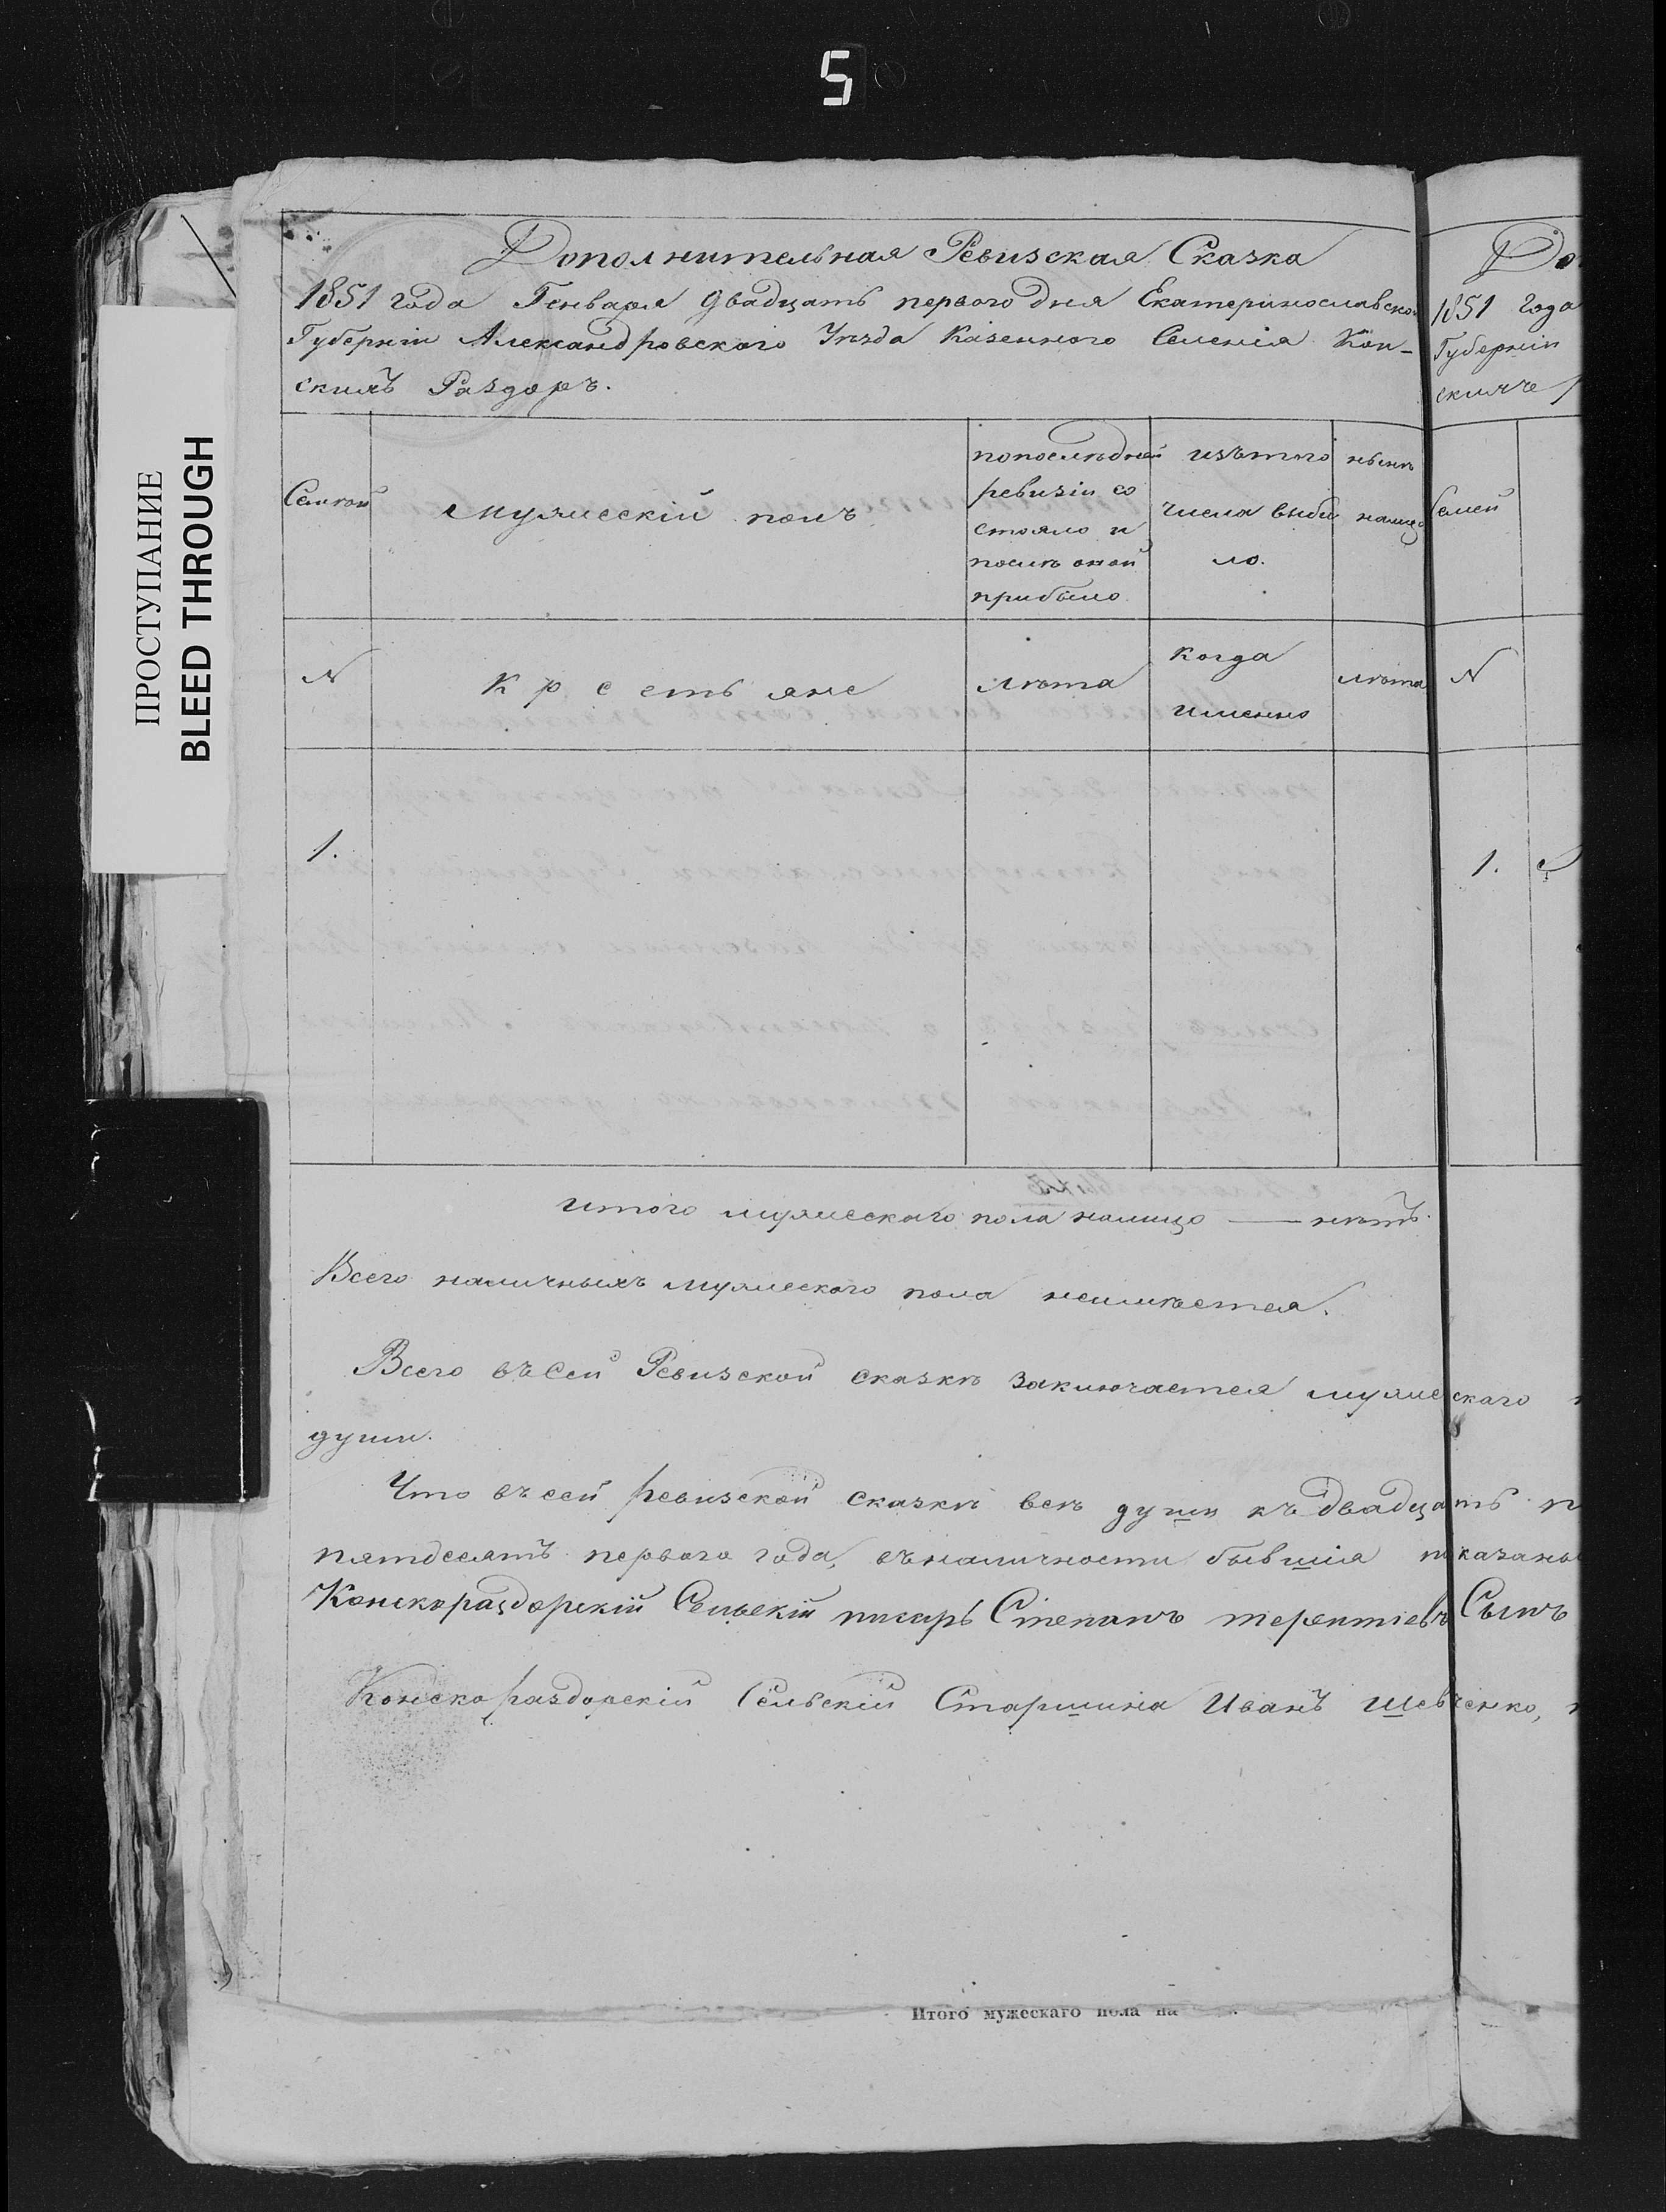 5
ПРОСТУПАНИЕ
BLEED THROUGH
Дополнительная Ревизская Сказка
1851 года Генваря двадцать первого дня Екатеринославской
Губерніи Александровского Уезда Казенного Селенія Кон-
скихъ Раздоръ.
Семьи
мужескій полъ
попоследней
ревизіи со
стояло и
после оной
прибыло
изътого
числа выбы
ло.
ныне
налицо
N
Крестьяне
лѣта
когда
именно
лѣта
1.
итого мужеского пола налицо — нѣтъ.
Всего наличныхъ мужеского пола неимѣется.
Всего въсей Ревизской сказкѣ заключается мужеского
души.
Что въсей ревизской сказкѣ всѣ души къ двадцать
пятдесятъ первого года, въналичности бывшія показаны
Конскораздорскій Сельскій писарь Степанъ терентіевъ Сынъ
Конскораздорскій Сельскій Старшина Иванъ Шевченко,
Итого мужескаго пола на
До
1851 года
Губерніи
скихъ
Семей
N
1.